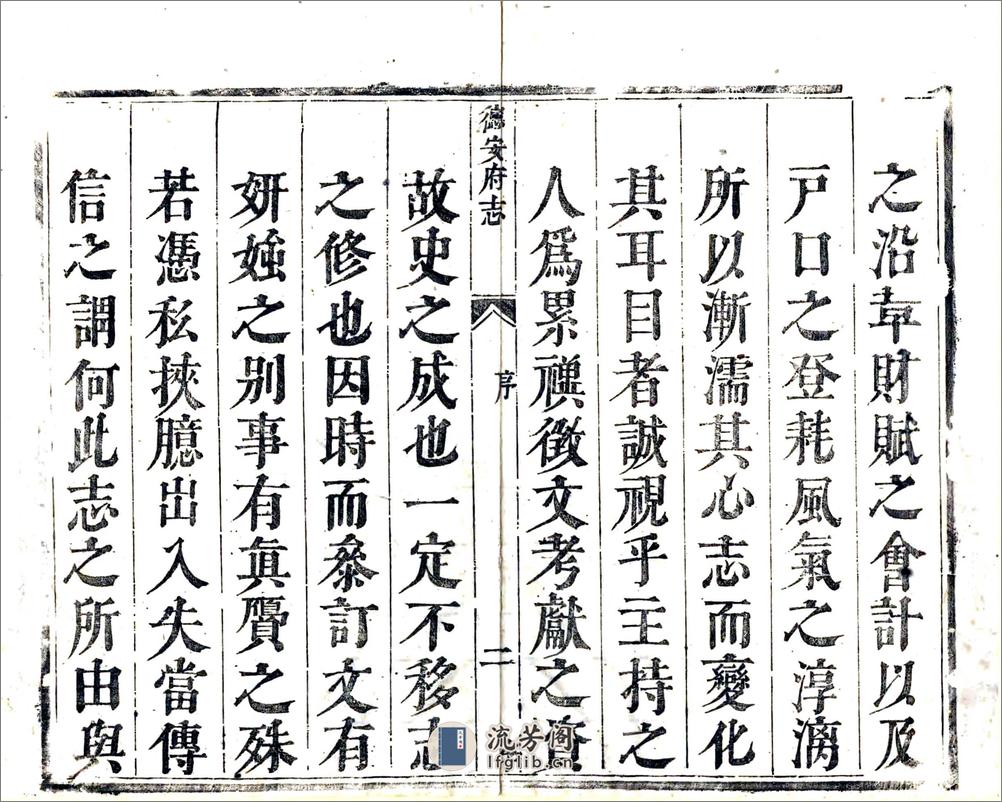 之沿革財賦之會計以及
戸口之登耗風氣之淳漓
所以漸濡其心志而變化
其耳目者誠視乎主持之
人爲累禩徴文考獻之資
德安府志
序
二
故史之成也一定不移志
之修也因時而叅訂文有
妍媸之别事有眞贗之殊
若憑私挾臆出入失當傳
信之謂何此志之所由與
流芳阁
lfglib.cn